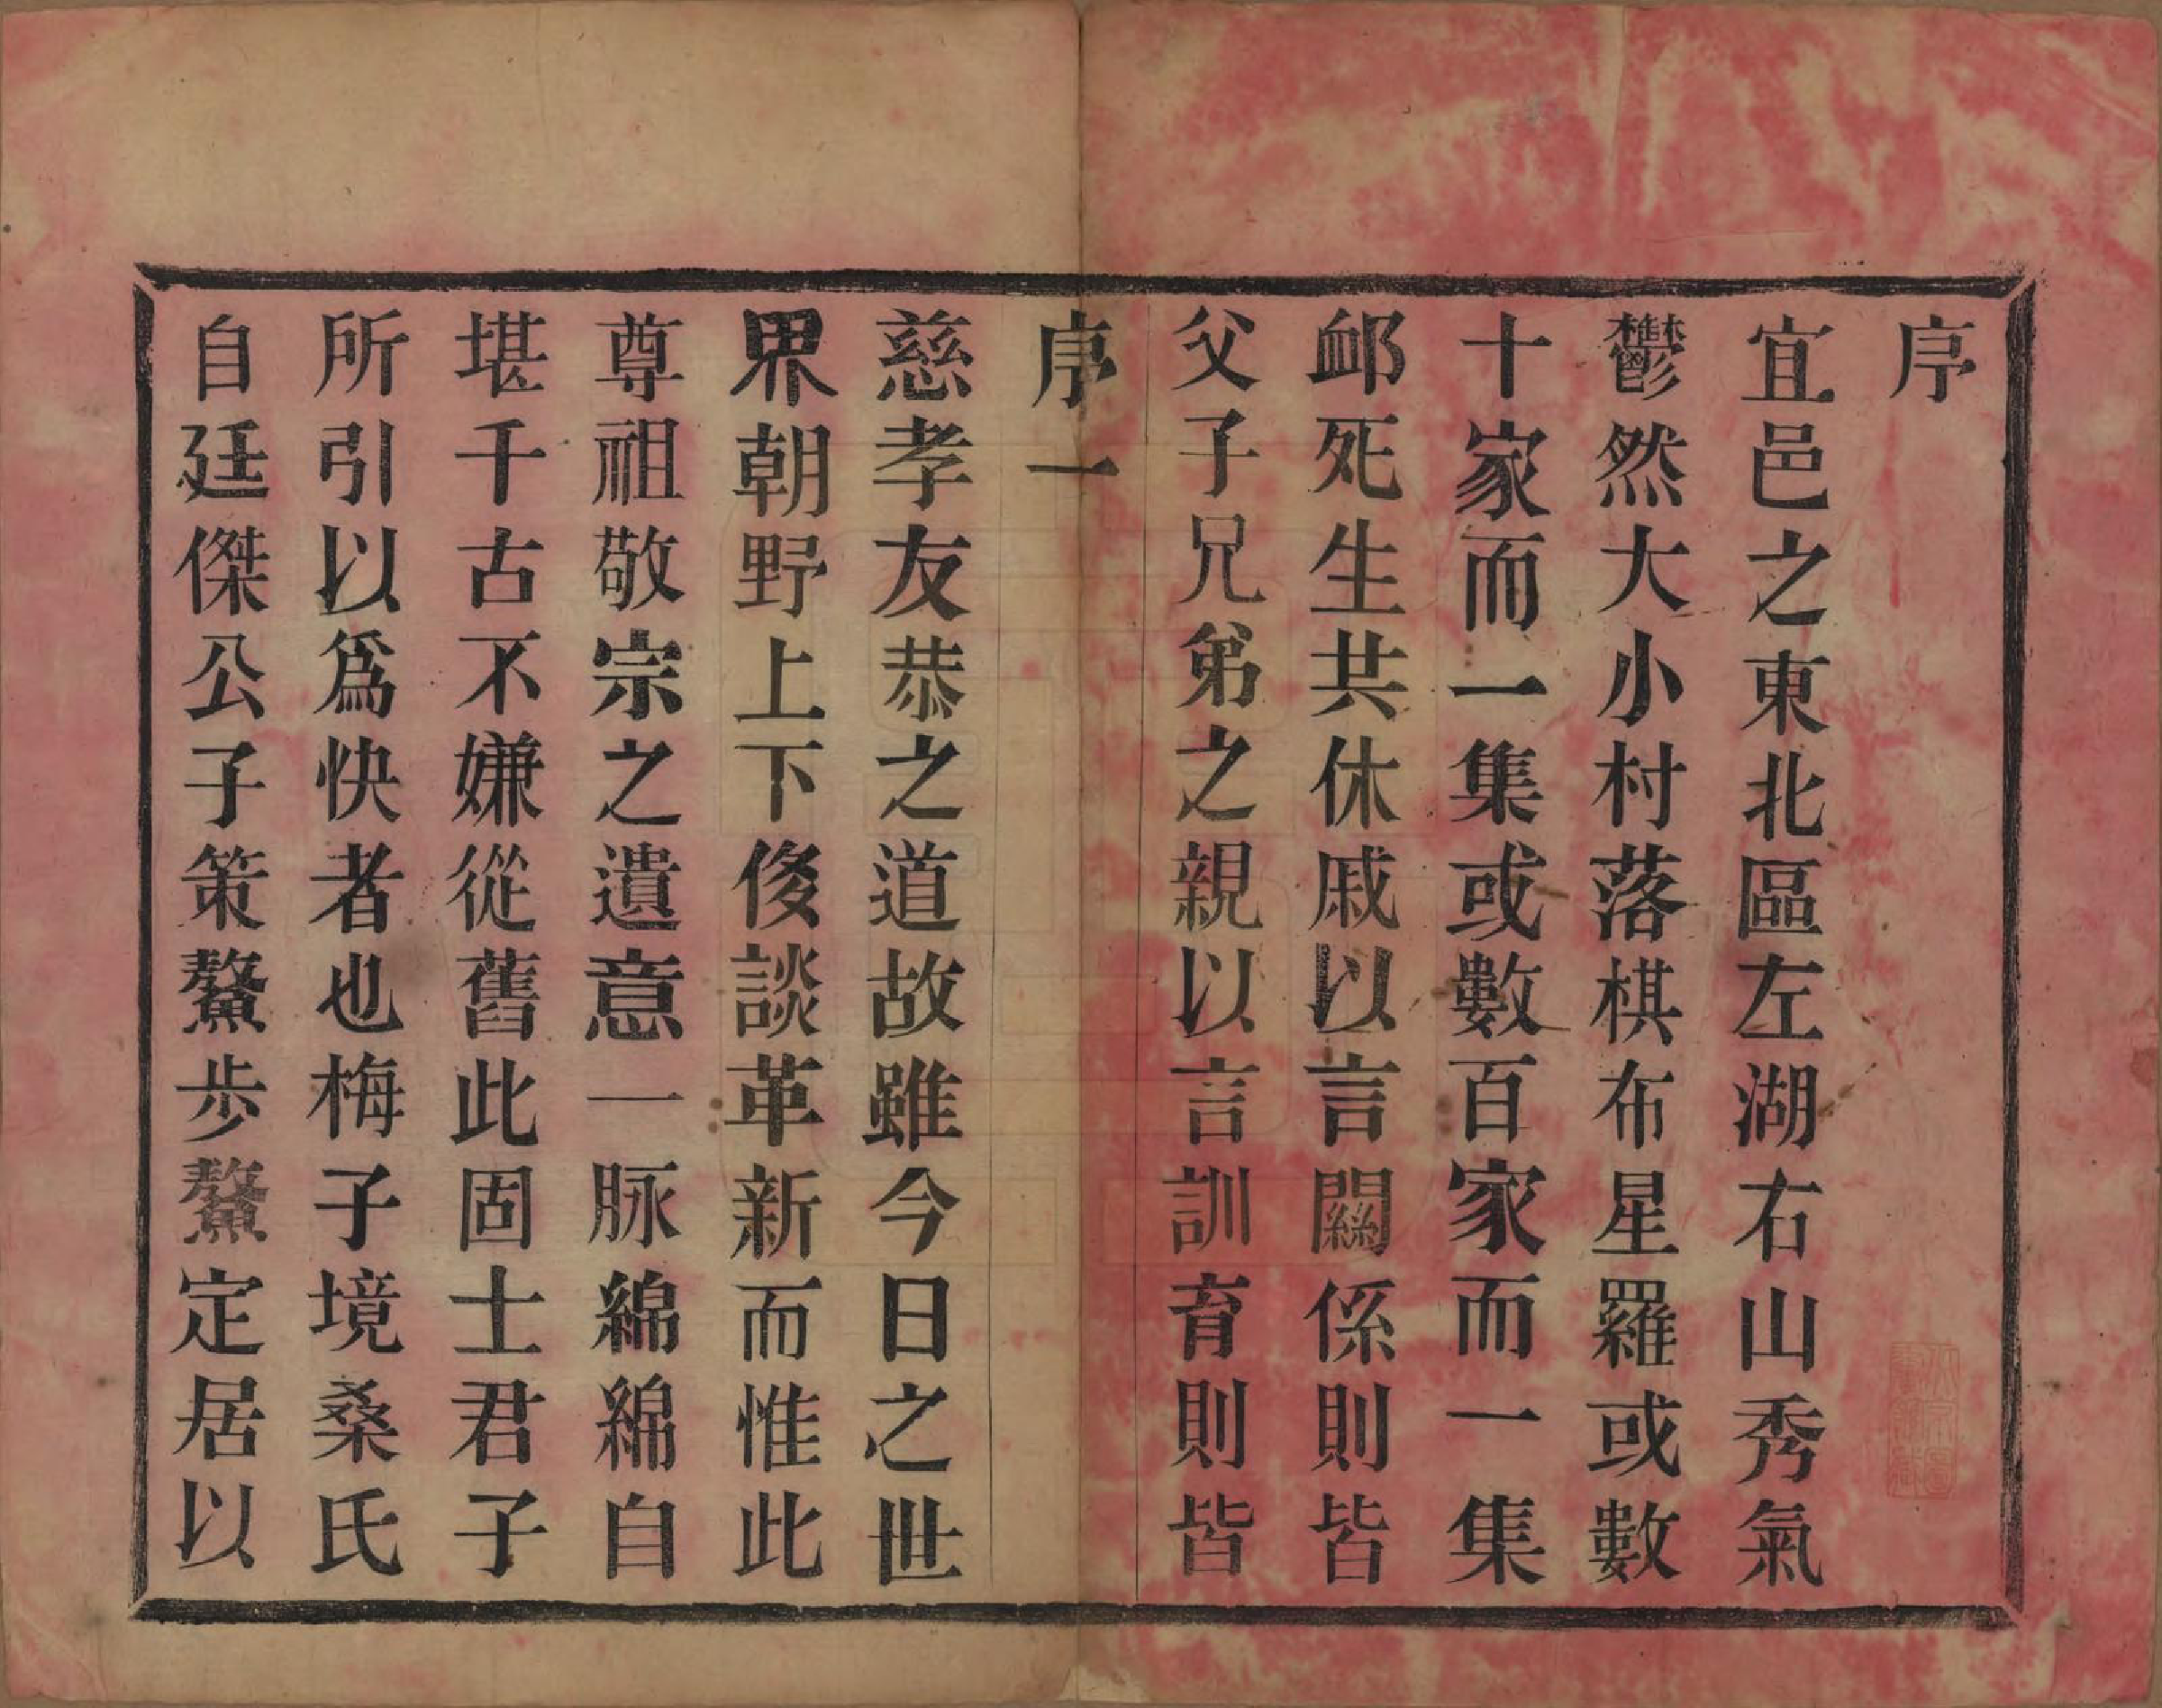 序
宜邑之東北區左湖右山秀氣
鬱然大小村落棋布星羅或數
十家而一集或數百家而一集
卹死生共休戚以言關係則皆
父子兄弟之親以言訓育則皆
序一
慈孝友恭之道故雖今日之世
界朝野上下侈談革新而惟此
尊祖敬宗之遺意一脉綿綿自
堪千古不嫌從舊此固士君子
所引以爲快者也梅子境桑氏
自廷傑公子策鰲步鰲定居以